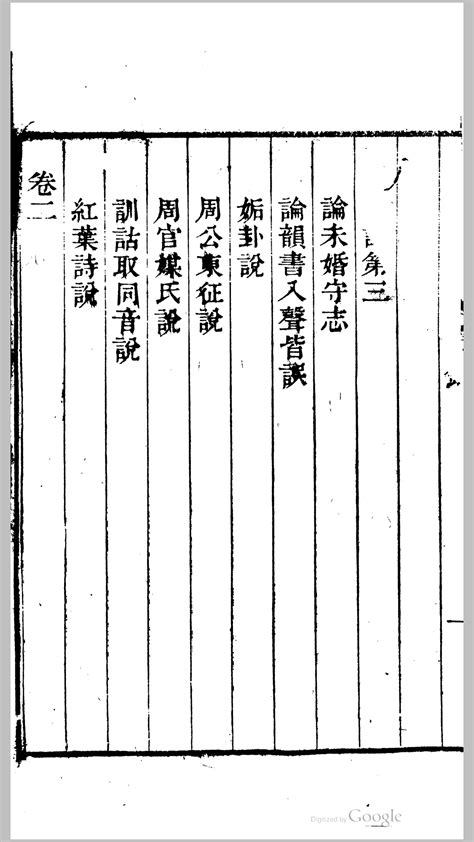 第三
論未婚守志
論韻書入聲皆誤
姤卦說
周公東征說
周官媒氏說
訓詁取同音說
紅葉詩說
卷二
Digitized by Google